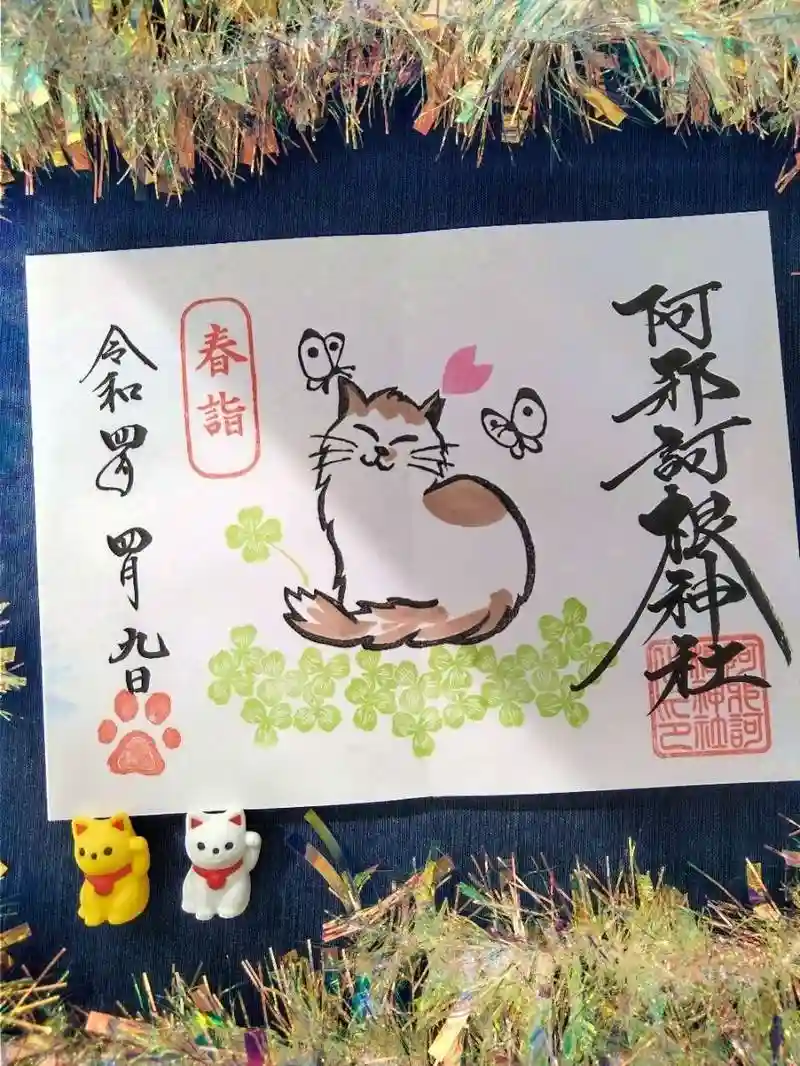 阿邪訶根神社
春詣
令和四年
四月九日
阿邪訶
根神社